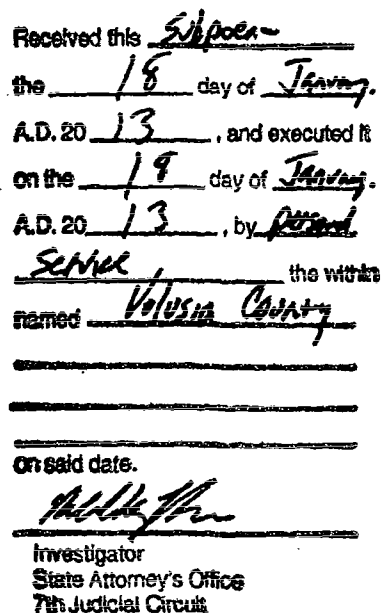 Received this Subpoena
the 18 day of January.
A.D. 20 13, and executed it
on the 18 day of January.
A.D. 20 13, by personal
service, the within
named Volusia County
on said date.
Investigator
State Attorney's Office
7th Judicial Circuit